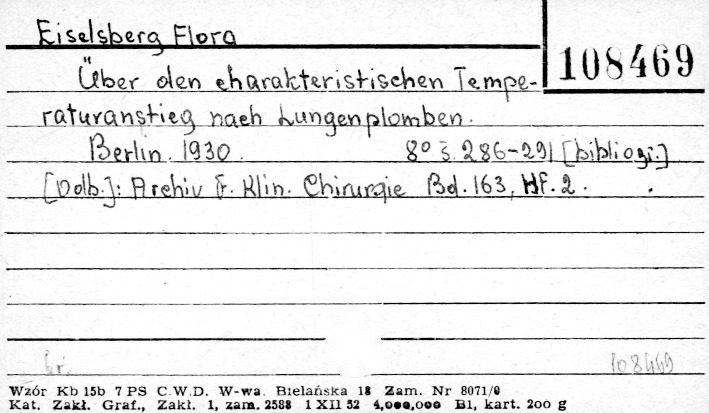 Eiselsberg Flora
108469
Über den charakteristischen Tempe-
raturanstieg nach Lungenplomben.
Berlin. 1930. 8° S. 286-291 [bibliogr.]
[Odb.]: Archiv f. Klin. Chirurgie Bd. 163, Hf. 2.
108469
Wzór Kb 15b 7 PS C.W.D. W-wa. Bielańska 18 Zam. Nr 8071/0
Kat. Zakł. Graf., Zakł. 1, zam. 2588 1 XII 52 4,000,000 B1, kart. 200 g